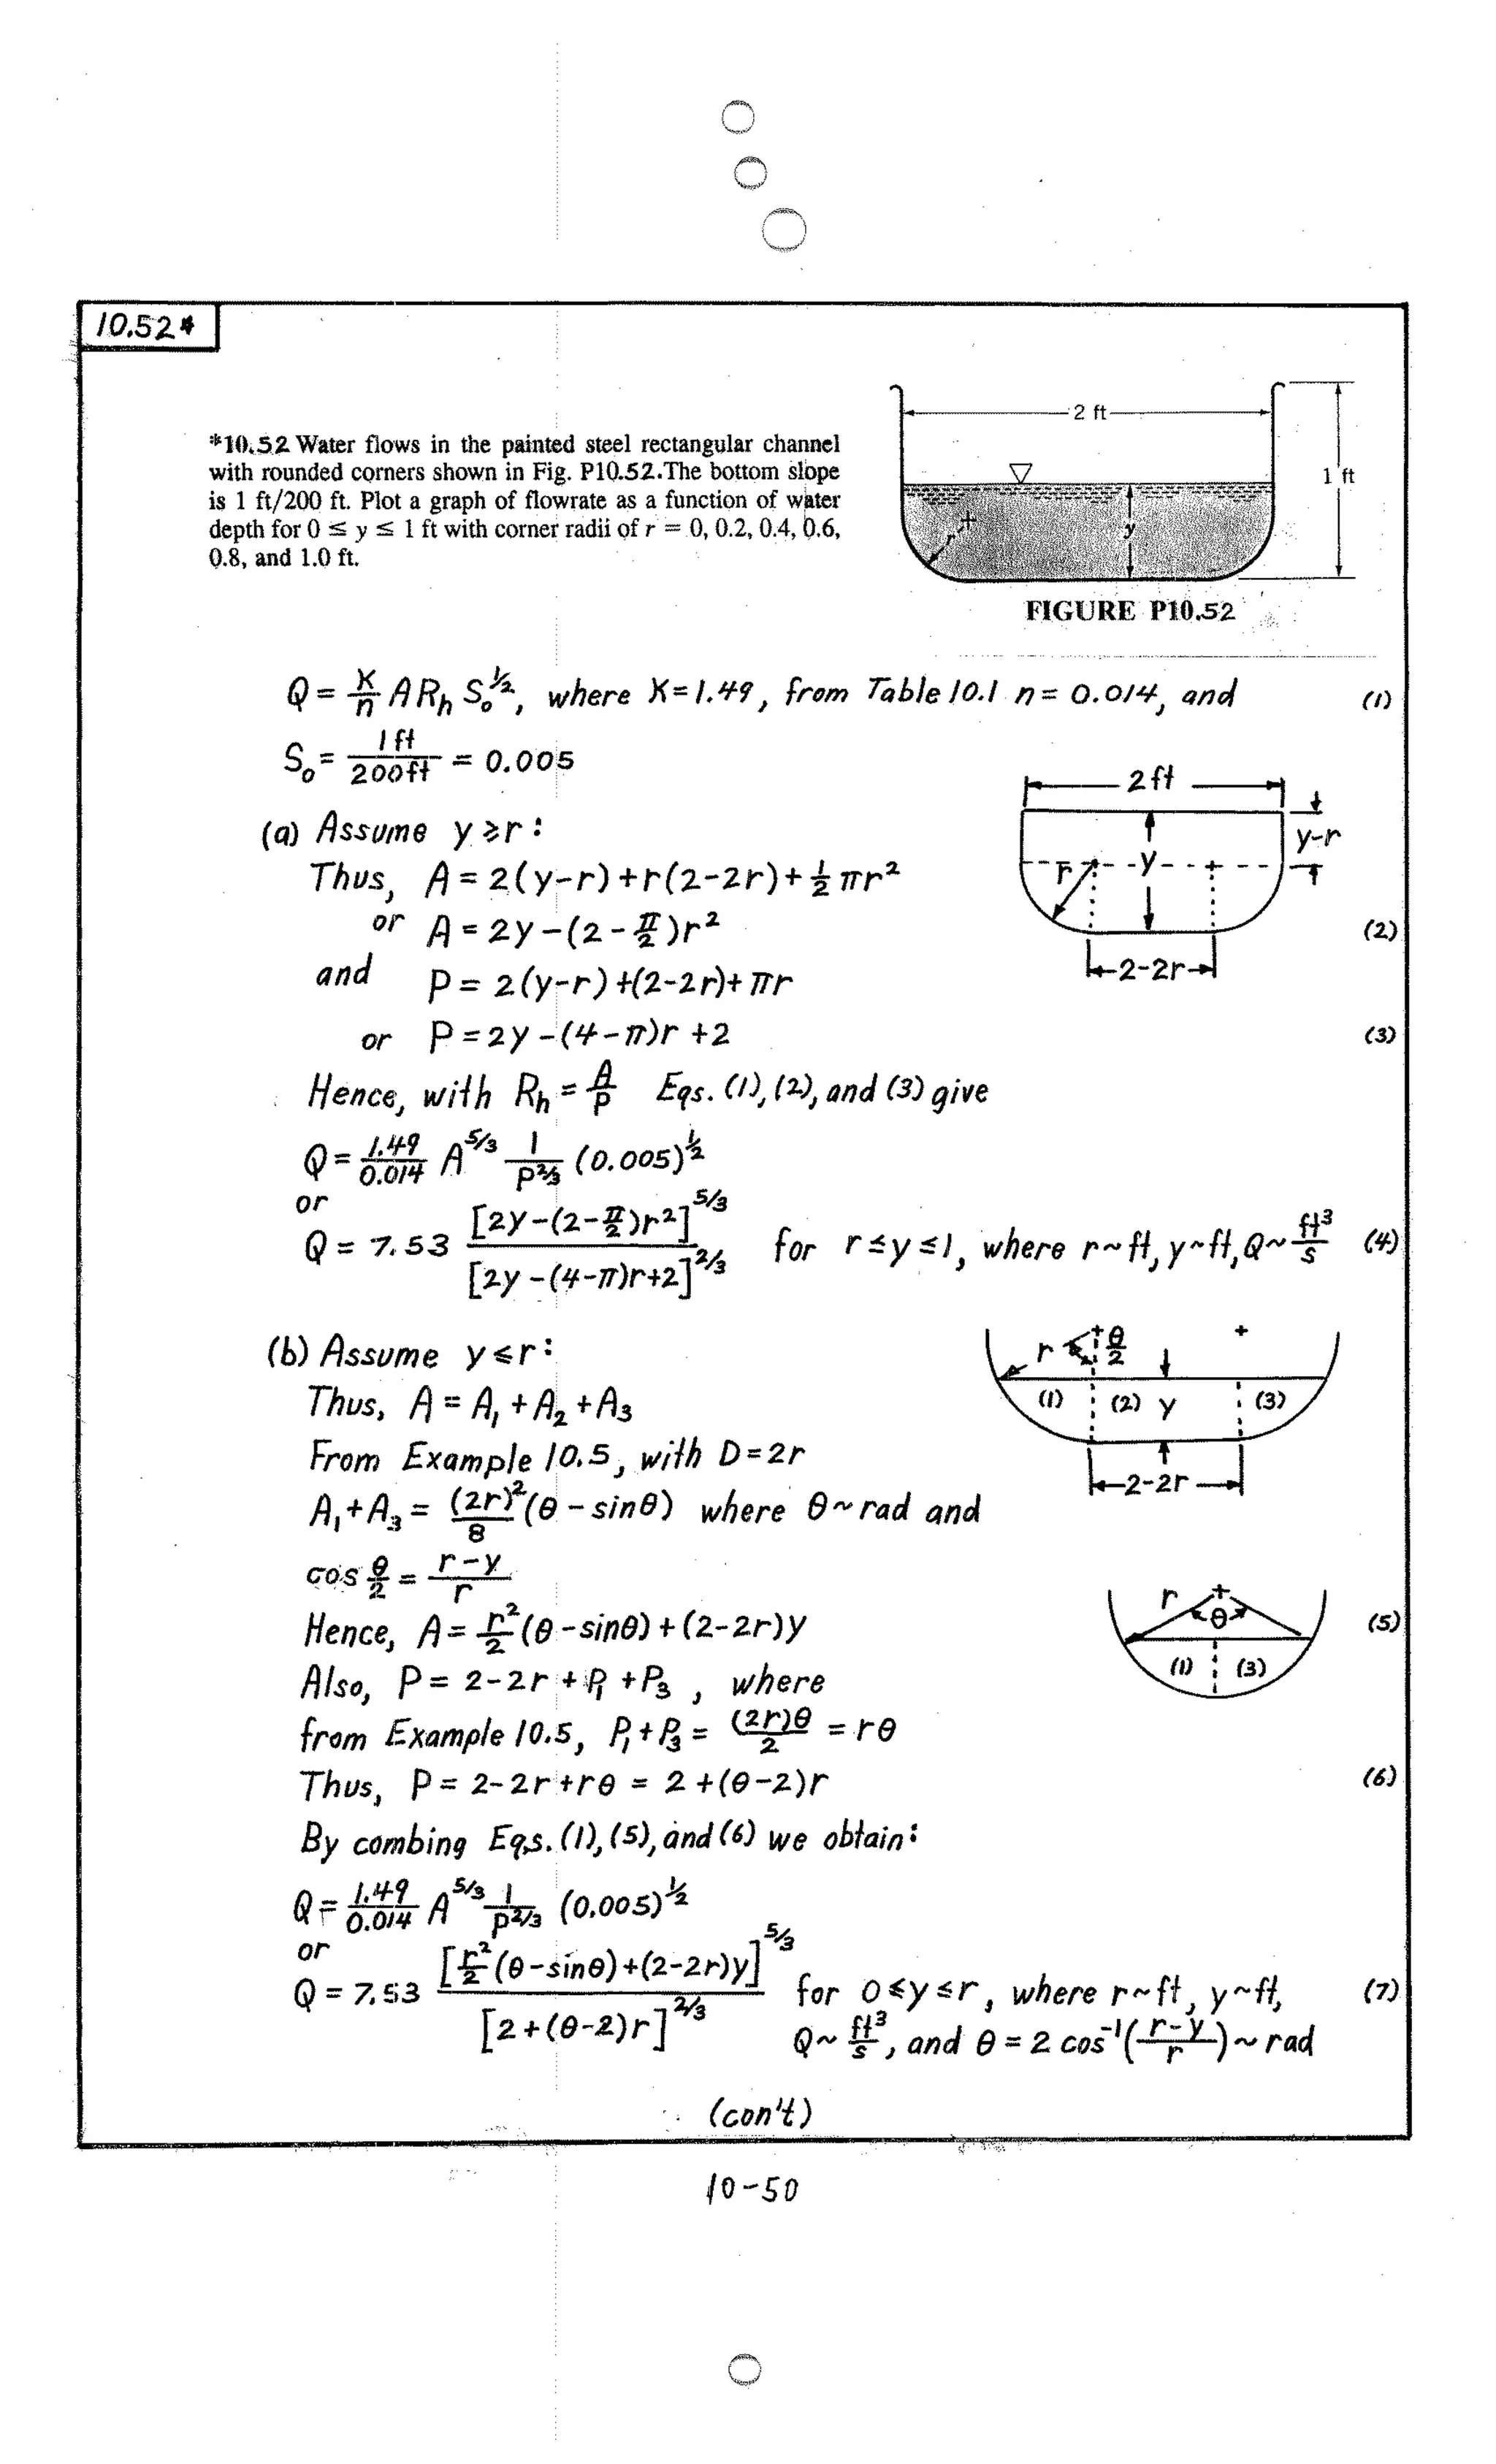 10.52*
*10.52 Water flows in the painted steel rectangular channel
with rounded corners shown in Fig. P10.52.The bottom slope
is 1 ft/200 ft. Plot a graph of flowrate as a function of water
depth for 0 ≤ y ≤ 1 ft with corner radii of r = 0, 0.2, 0.4, 0.6,
0.8, and 1.0 ft.
2 ft
1 ft
r
y
FIGURE P10.52
Q = K/n A Rh S₀^½, where K=1.49, from Table 10.1 n = 0.014, and (1)
S₀ = 1ft/200ft = 0.005
(a) Assume y ≥ r:
Thus, A = 2(y-r)+r(2-2r)+½πr²
or A = 2y-(2-π/2)r² (2)
and P = 2(y-r)+(2-2r)+πr
or P = 2y-(4-π)r+2 (3)
2ft
y-r
r
y
2-2r
Hence, with Rh = A/P Eqs. (1), (2), and (3) give
Q = 1.49/0.014 A^5/3 1/P^2/3 (0.005)^½
or
Q = 7.53 [2y-(2-π/2)r²]^5/3 / [2y-(4-π)r+2]^2/3 for r≤y≤1, where r~ft, y~ft, Q~ft³/s (4)
(b) Assume y ≤ r:
Thus, A = A₁ + A₂ + A₃
From Example 10.5, with D=2r
A₁+A₃ = (2r)²/8 (θ - sinθ) where θ~rad and
cos θ/2 = r-y/r
r
θ/2
(1) (2) y (3)
2-2r
Hence, A = r²/2 (θ-sinθ)+(2-2r)y (5)
Also, P = 2-2r + P₁ + P₃ , where
from Example 10.5, P₁+P₃ = (2r)θ/2 = rθ
r
θ
(1) (3)
Thus, P = 2-2r+rθ = 2+(θ-2)r (6)
By combing Eqs. (1), (5), and (6) we obtain:
Q = 1.49/0.014 A^5/3 1/P^2/3 (0.005)^½
or
Q = 7.53 [r²/2 (θ-sinθ)+(2-2r)y]^5/3 / [2+(θ-2)r]^2/3 for 0≤y≤r, where r~ft, y~ft, (7)
Q~ft³/s, and θ = 2 cos⁻¹(r-y/r)~rad
(con't)
10-50